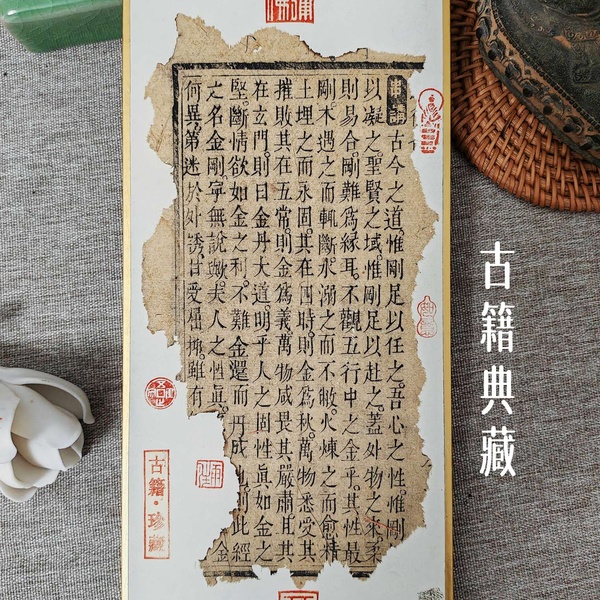 串講
古今之道。惟剛足以任之。吾心之性。惟剛
以凝之聖賢之域。惟剛足以赴之。蓋外物之來。柔
則易合。剛難爲緣耳。不觀五行中之金乎。其性最
剛。木遇之而輒斷。水溺之而不敝。火煉之而愈精
土埋之而永固。其在四時。則金爲秋。萬物悉受其
摧敗。其在五常。則金爲義。萬物咸畏其嚴肅。且其
在玄門。則曰金丹大道。明乎人之固性眞如金之
堅。斷情欲如金之利。不難金還而丹成也。則此經
之名金剛。寧無說歟。夫人之性眞。金
何異。第迷於外誘。甘受屈撓。雖有
古籍·珍藏
古籍典藏